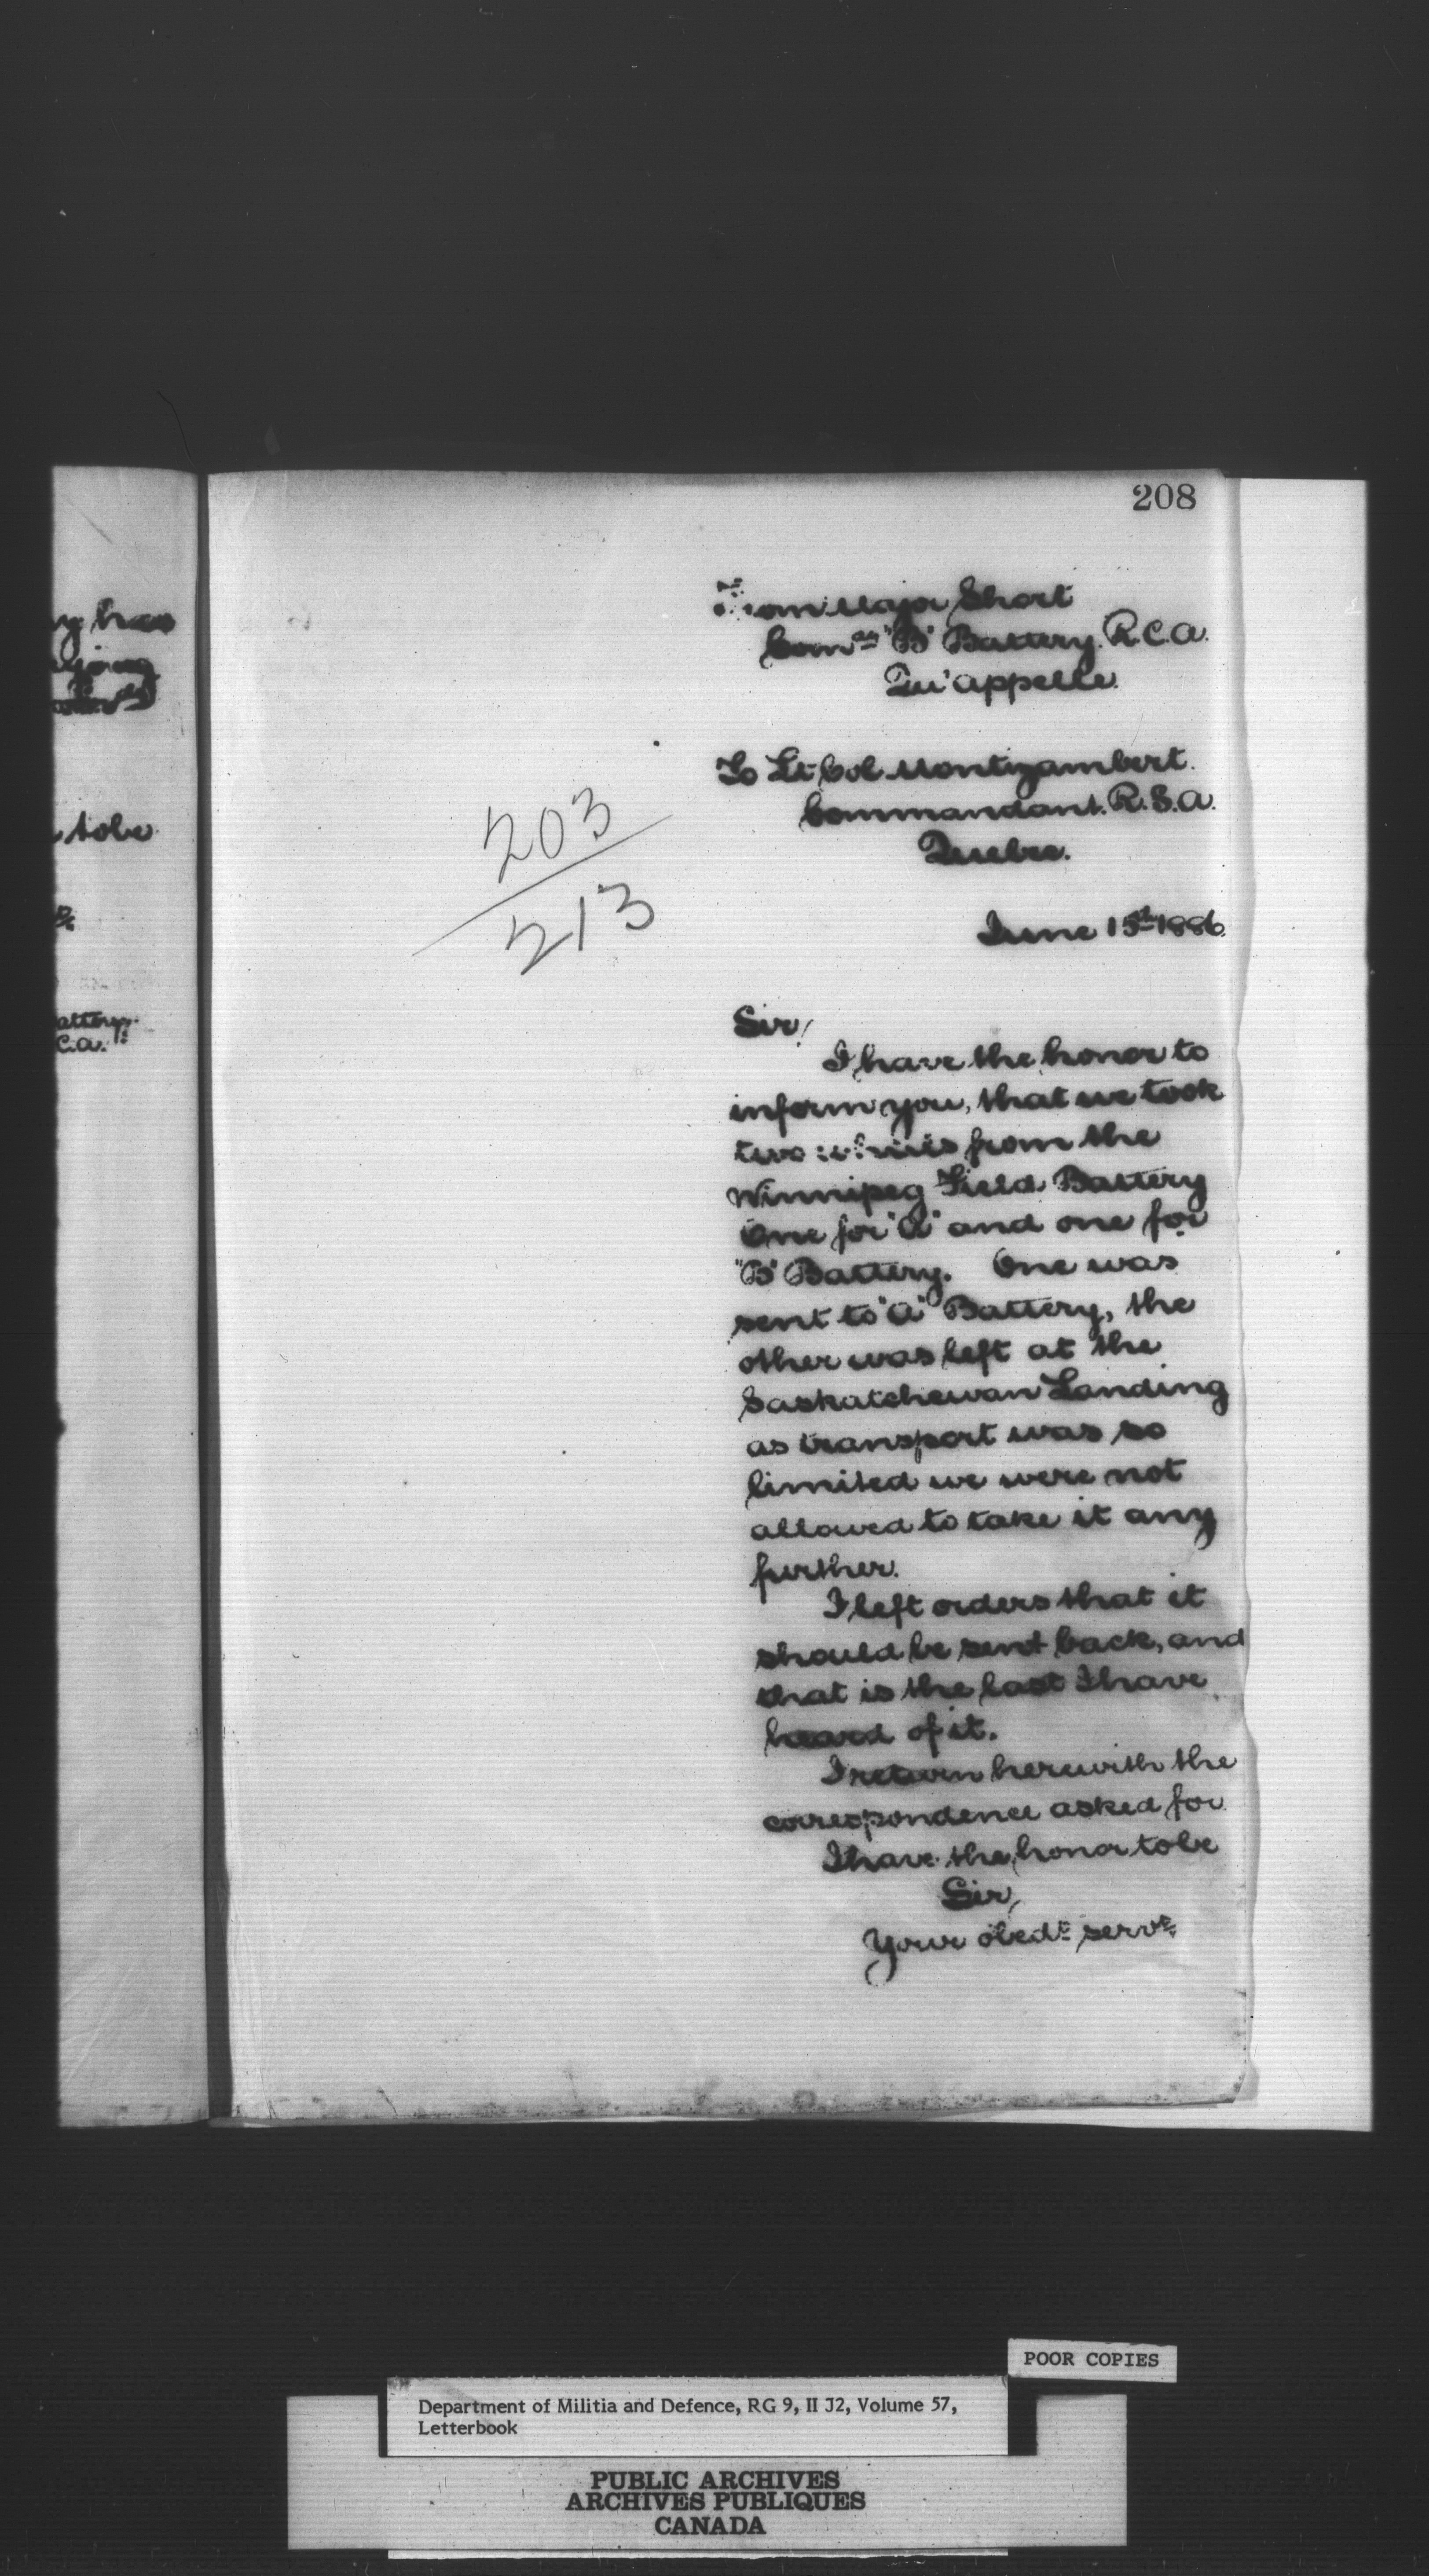 208
From Major Short
Com^dg "B" Battery. R.C.A.
Qu'appelle.
To Lt Col Montizambert.
Commandant. R.S.A.
Quebec.
203
213
June 15th 1886.
Sir,
I have the honor to
inform you, that we took
two from the
Winnipeg Field Battery
One for "A" and one for
"B" Battery. One was
sent to "A" Battery, the
other was left at the
Saskatchewan Landing
as transport was so
limited we were not
allowed to take it any
further.
I left orders that it
should be sent back, and
that is the last I have
heard of it.
I return herewith the
correspondence asked for
I have the honor to be
Sir,
Your obedt servt
y has
to be
attery.
C.A.
POOR COPIES
Department of Militia and Defence, RG 9, II J2, Volume 57,
Letterbook
PUBLIC ARCHIVES
ARCHIVES PUBLIQUES
CANADA